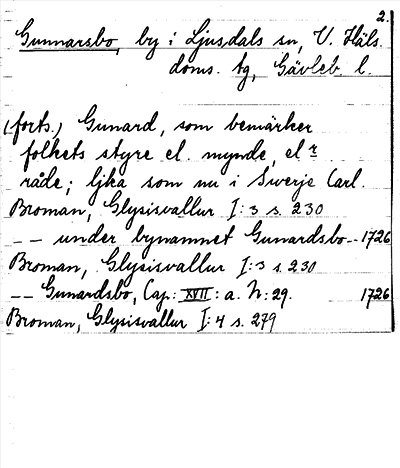 2.
Gunnarsbo, by i Ljusdals sn, V. Häls.
doms. tg, Gävleb. l.
(forts.) Gunard, som bemärker
folkets styre el. mynde, el r
råde; ljka som nu i Swerje Carl.
Broman, Glysisvallur I: 3 s. 230
-- under bynamnet Gunardsbo-- 1726
Broman, Glysisvallur I: 3 s. 230
-- Gunardsbo, Cap: XVII: a. N: 29. 1726
Broman, Glysisvallur I: 4 s. 279